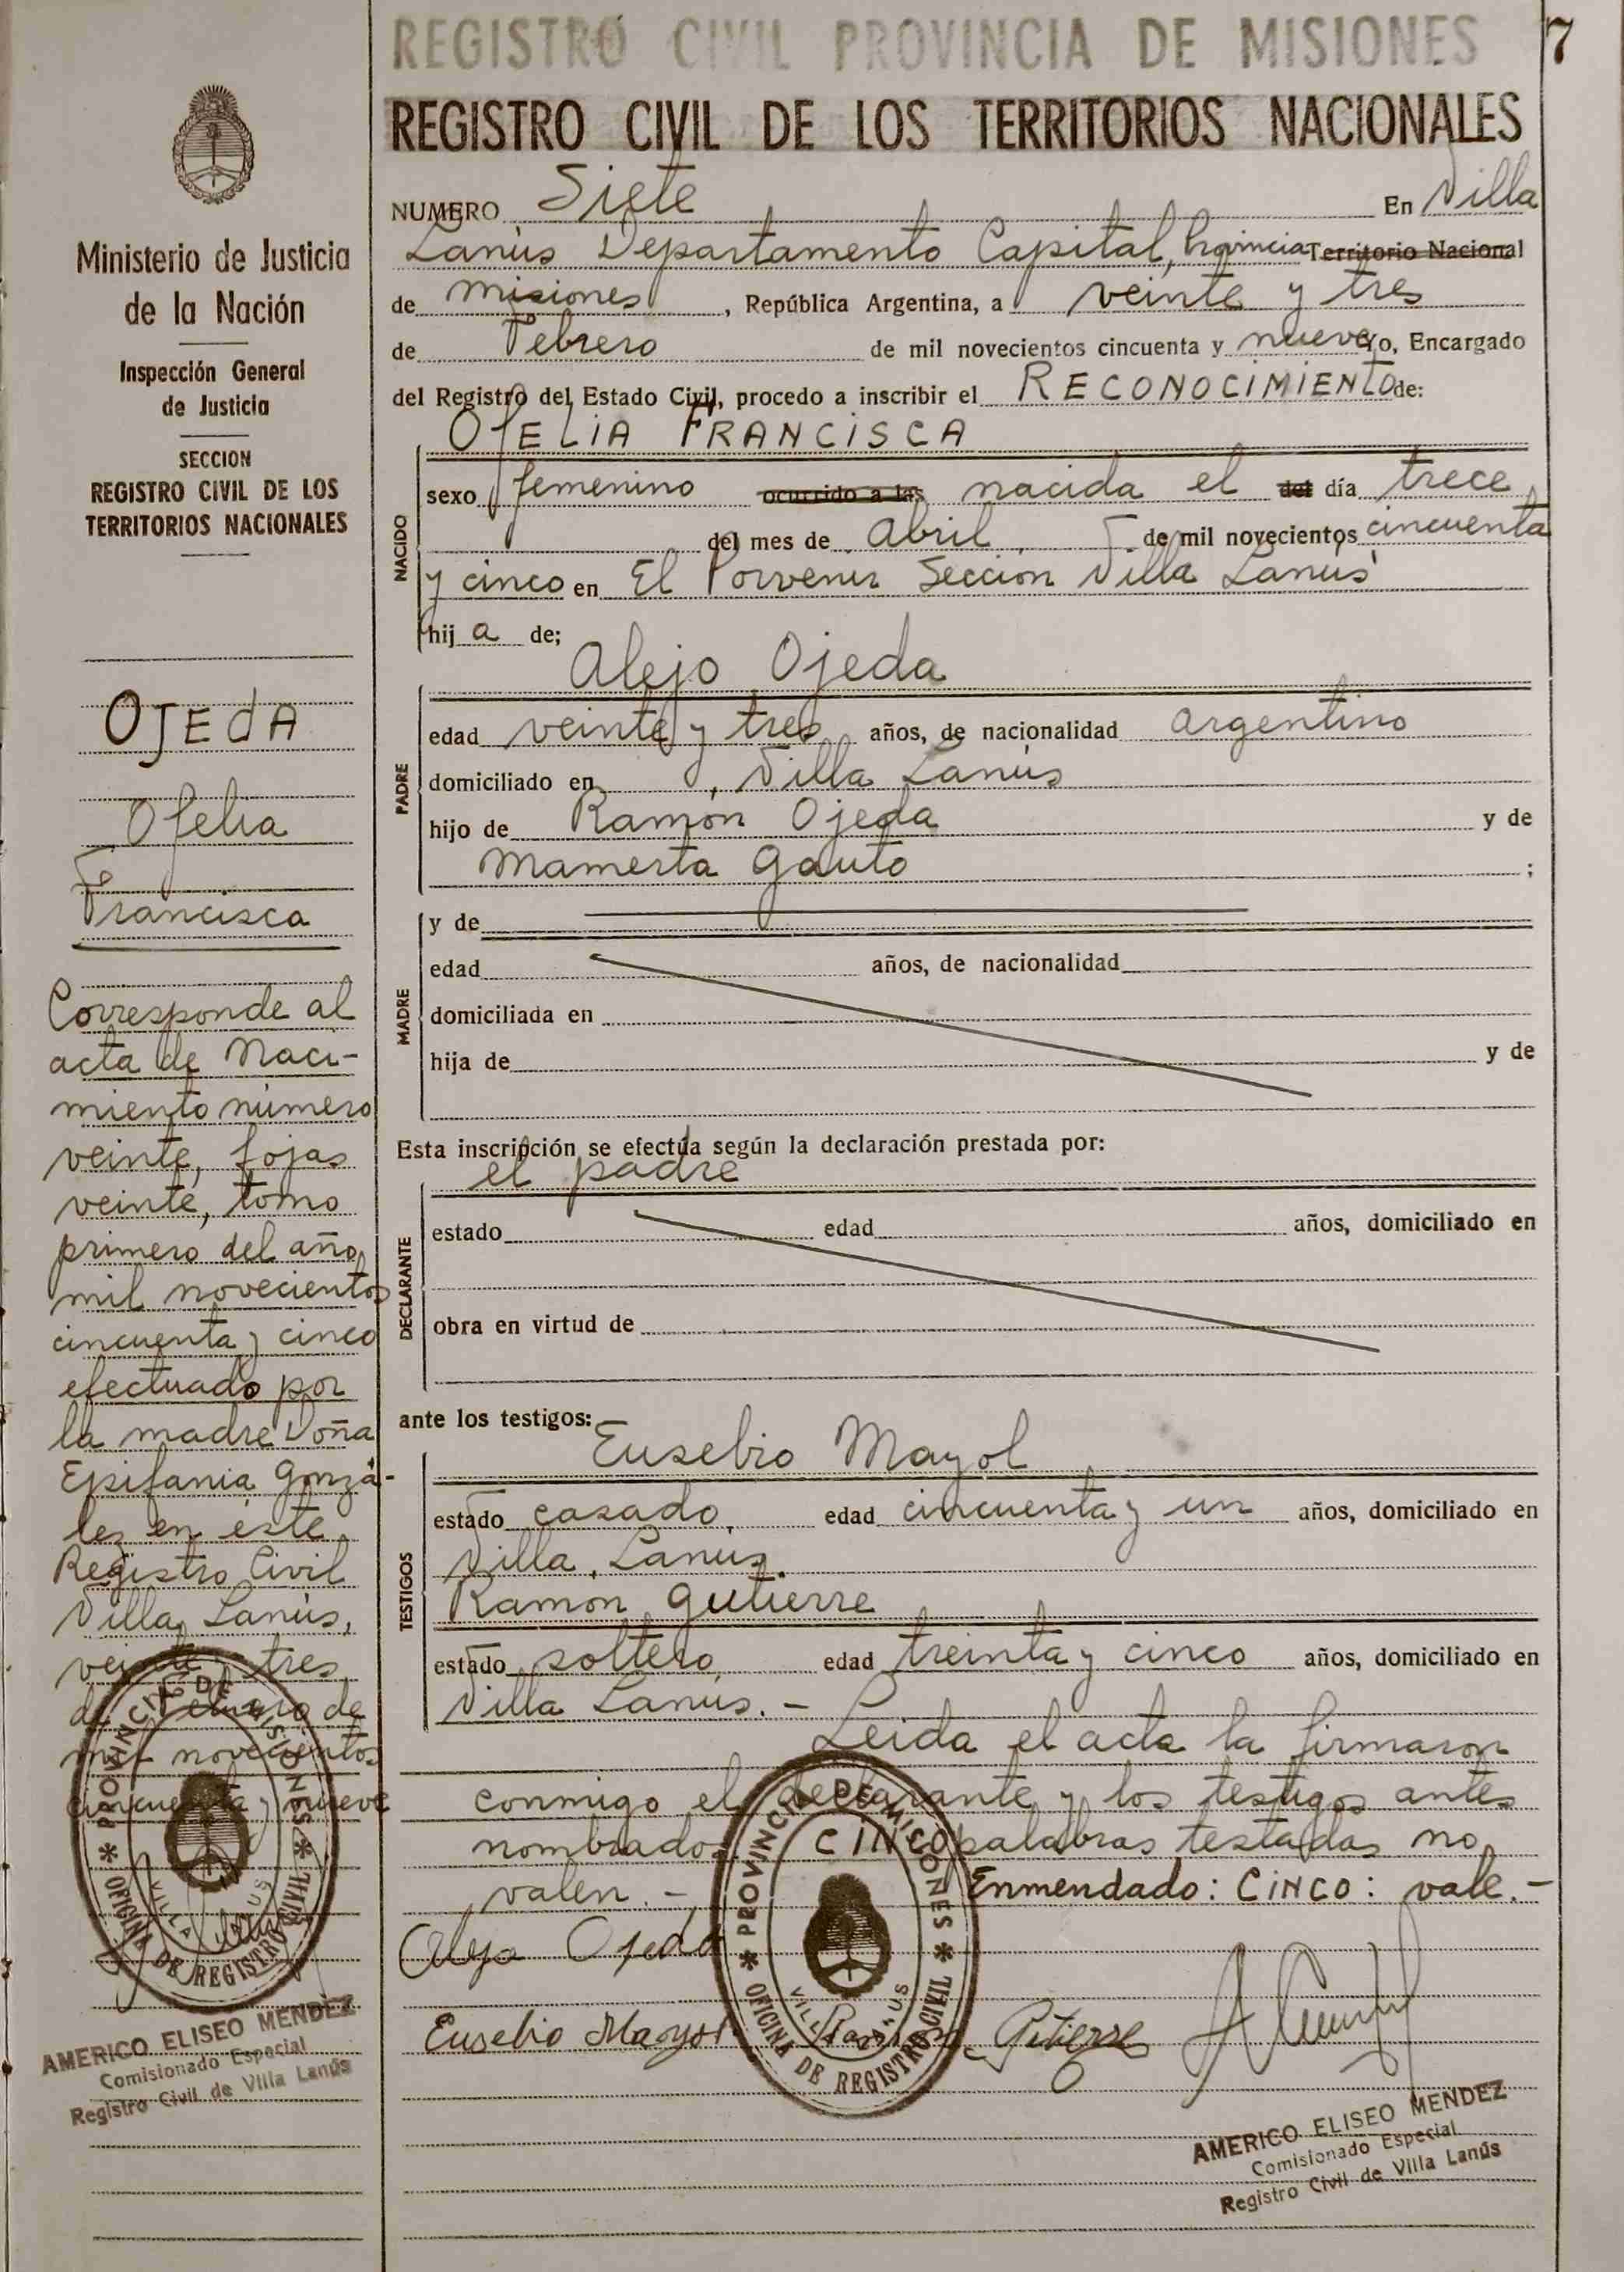 REGISTRO CIVIL PROVINCIA DE MISIONES
7
REGISTRO CIVIL DE LOS TERRITORIOS NACIONALES
Ministerio de Justicia
de la Nación
Inspección General
de Justicia
SECCION
REGISTRO CIVIL DE LOS
TERRITORIOS NACIONALES
OJEDA
Ofelia
Francisca
Corresponde al
acta de Naci-
miento número
veinte, fojas
veinte, tomo
primero del año
mil novecientos
cincuenta y cinco
efectuado por
la madre Doña
Epifania Gonzá-
lez en este
Registro Civil
Villa Lanús,
veinte y tres
de Febrero de
mil novecientos
cincuenta y nueve
PROVINCIA DE MISIONES
VILLA LANUS
OFICINA DE REGISTRO CIVIL
AMERICO ELISEO MENDEZ
Comisionado Especial
Registro Civil de Villa Lanús
NUMERO Siete En Villa
Lanús Departamento Capital, Provincia Territorio Nacional
de Misiones, República Argentina, a veinte y tres
de Febrero de mil novecientos cincuenta y nueve yo, Encargado
del Registro del Estado Civil, procedo a inscribir el RECONOCIMIENTO de:
OFELIA FRANCISCA
NACIDO
sexo femenino ocurrido a las nacida el del día trece
del mes de Abril de mil novecientos cincuenta
y cinco en El Porvenir Sección Villa Lanús
hija de;
Alejo Ojeda
PADRE
edad veinte y tres años, de nacionalidad argentino
domiciliado en, Villa Lanús
hijo de Ramón Ojeda y de
Mamerta Gauto ;
MADRE
y de
edad años, de nacionalidad
domiciliada en
hija de y de
Esta inscripción se efectúa según la declaración prestada por:
el padre
DECLARANTE
estado edad años, domiciliado en
obra en virtud de
ante los testigos:
Eusebio Mayol
TESTIGOS
estado casado, edad cincuenta y un años, domiciliado en
Villa Lanús.
Ramon Gutierre
estado soltero, edad treinta y cinco años, domiciliado en
Villa Lanús. - Leida el acta la firmaron
conmigo el declarante y los testigos antes
nombrados. CINCO palabras testadas no
valen. - Enmendado: CINCO: vale. -
Alejo Ojeda
Eusebio Mayol Ramon Gutierre
PROVINCIA DE MISIONES
VILLA LANUS
OFICINA DE REGISTRO CIVIL
AMERICO ELISEO MENDEZ
Comisionado Especial
Registro Civil de Villa Lanús